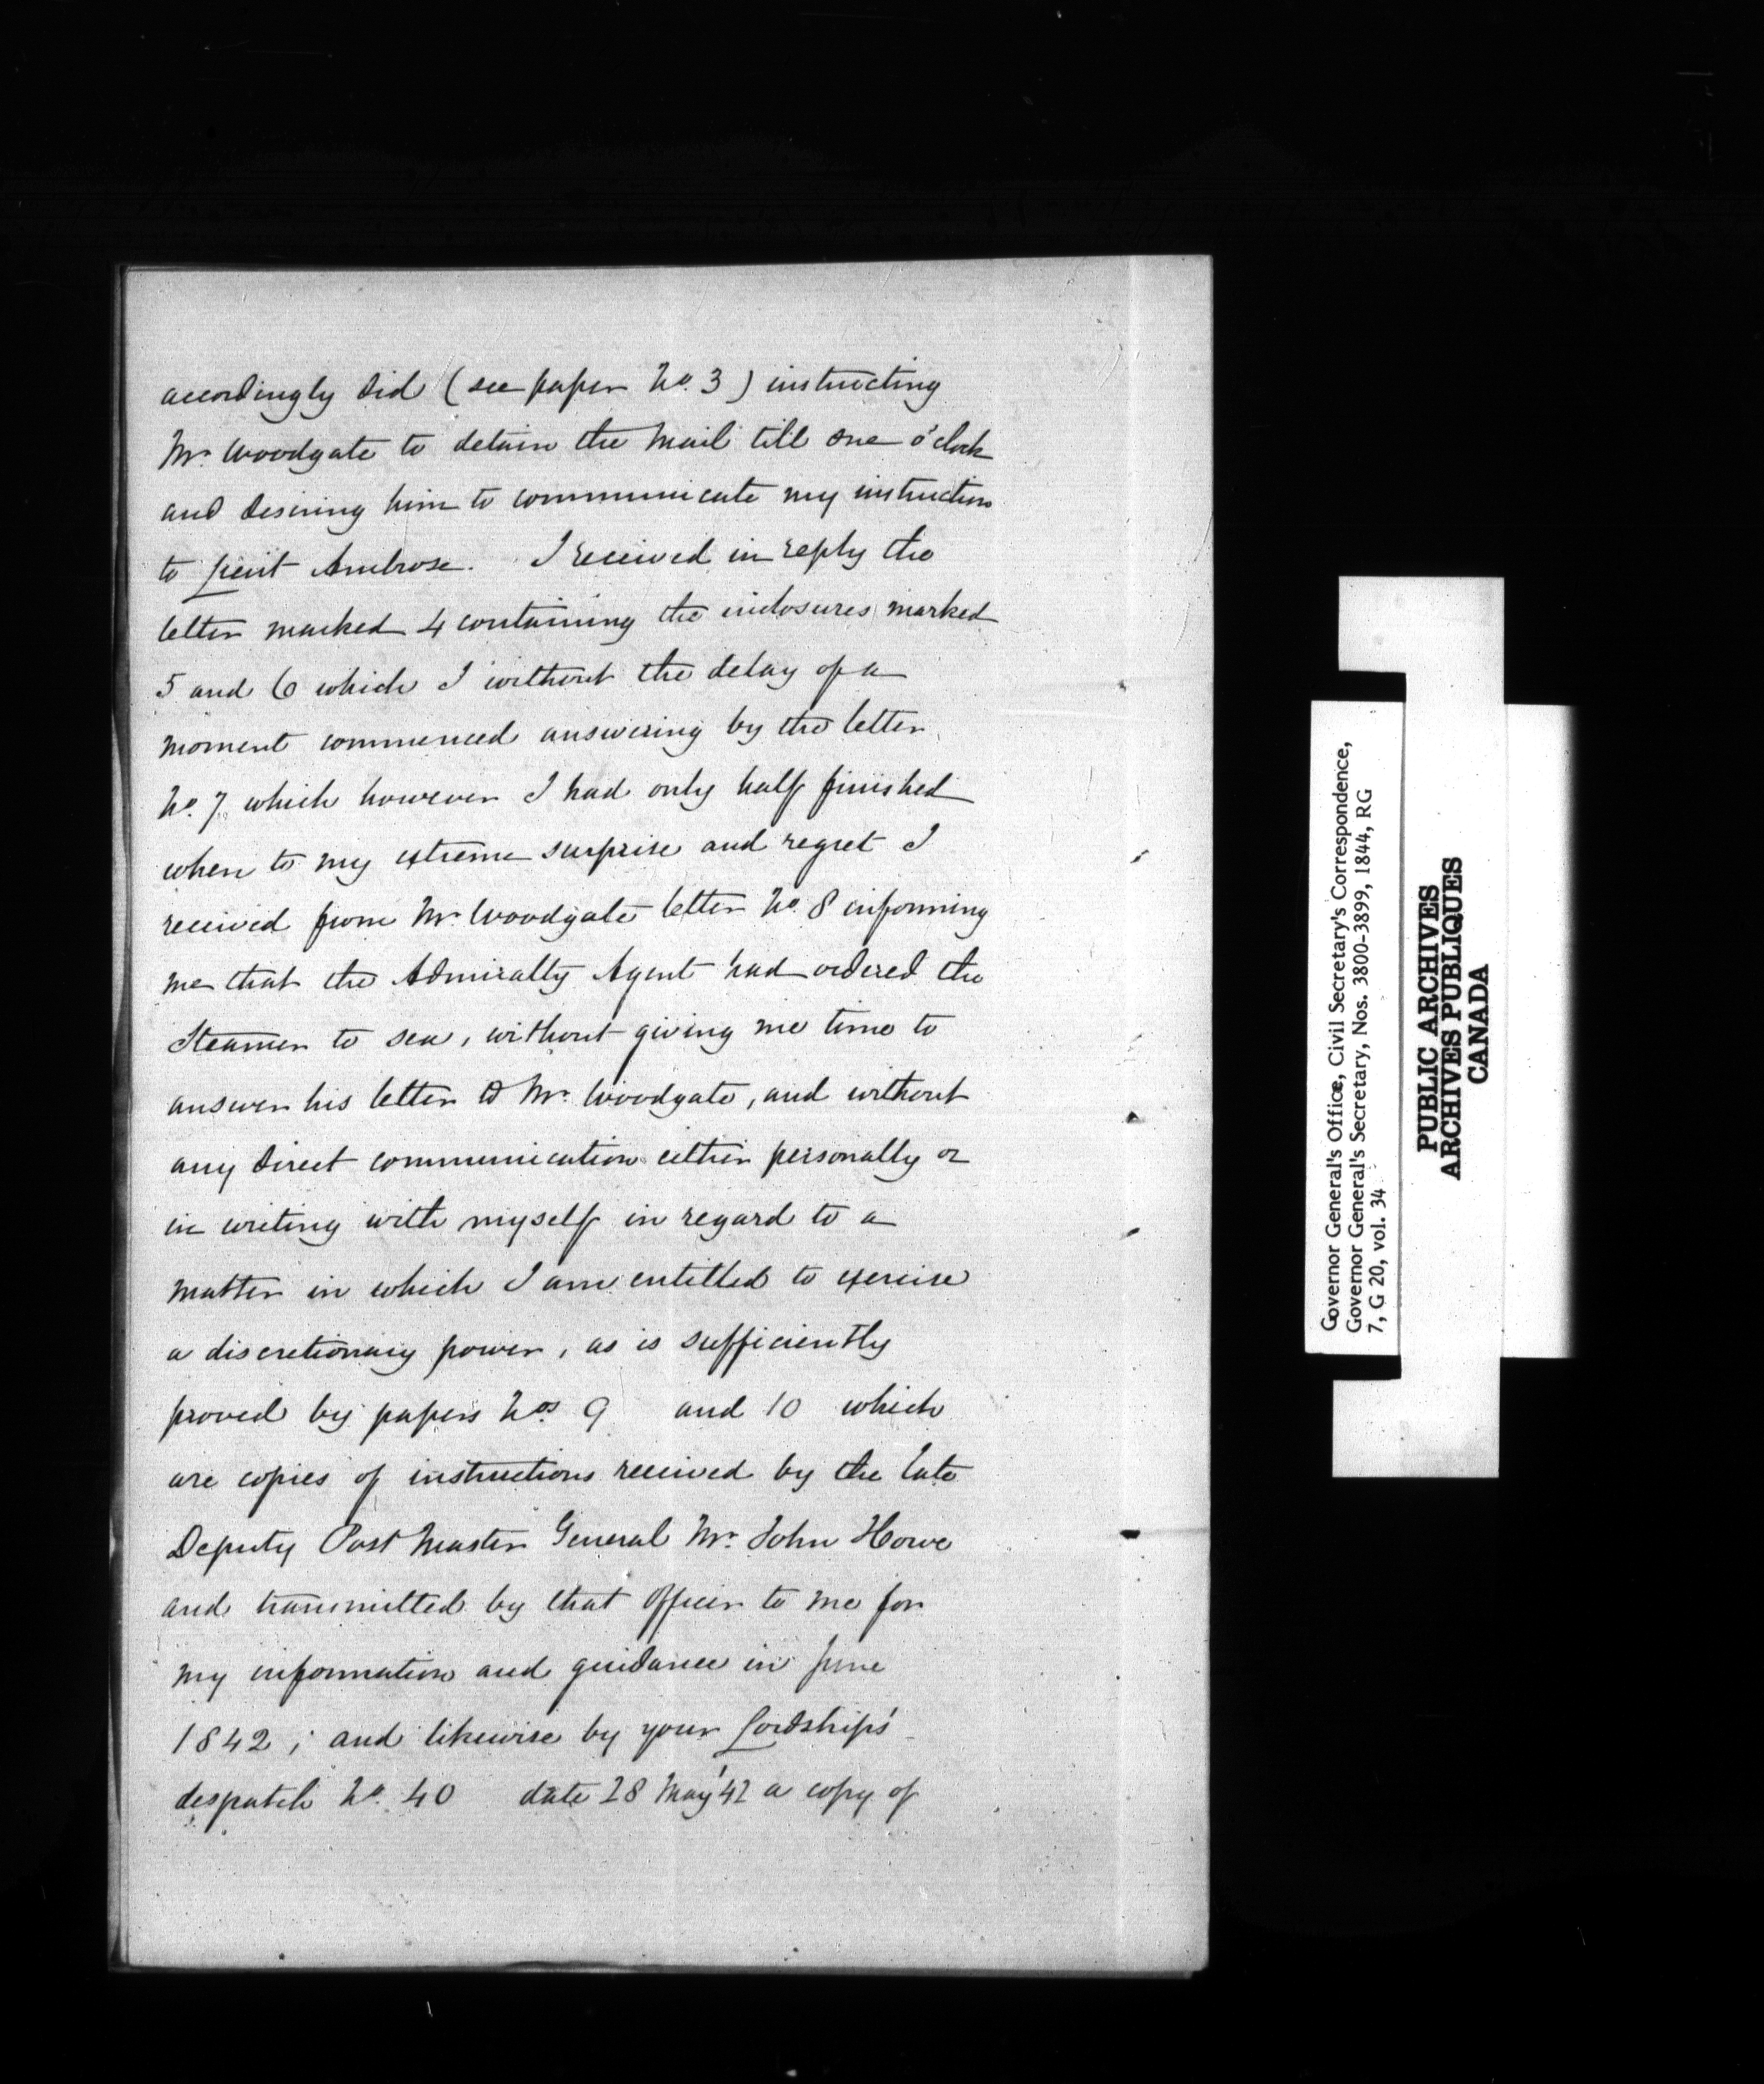 accordingly did (see paper No. 3) instructing
Mr. Woodgate to detain the Mail till one o'clock
and desiring him to communicate my instruction
to Lieut Ambrose. I received in reply the
letter marked 4 containing the inclosures marked
5 and 6 which I without the delay of a
moment commenced answering by the letter
No. 7 which however I had only half finished
when to my extreme surprise and regret I
received from Mr. Woodgate letter No. 8 informing
me that the Admiralty Agent had ordered the
Steamer to sea, without giving me time to
answer his letter to Mr. Woodgate, and without
any direct communication either personally or
in writing with myself in regard to a
matter in which I am entitled to exercise
a discretionary power, as is sufficiently
proved by papers Nos 9 and 10 which
are copies of instructions received by the late
Deputy Post Master General Mr. John Howe
and transmitted by that Officer to me for
my information and guidance in June
1842; and likewise by your Lordships'
despatch No. 40 date 28 May '42 a copy of
Governor General's Office, Civil Secretary's Correspondence,
Governor General's Secretary, Nos. 3800-3899, 1844, RG
7, G 20, vol. 34
PUBLIC ARCHIVES
ARCHIVES PUBLIQUES
CANADA